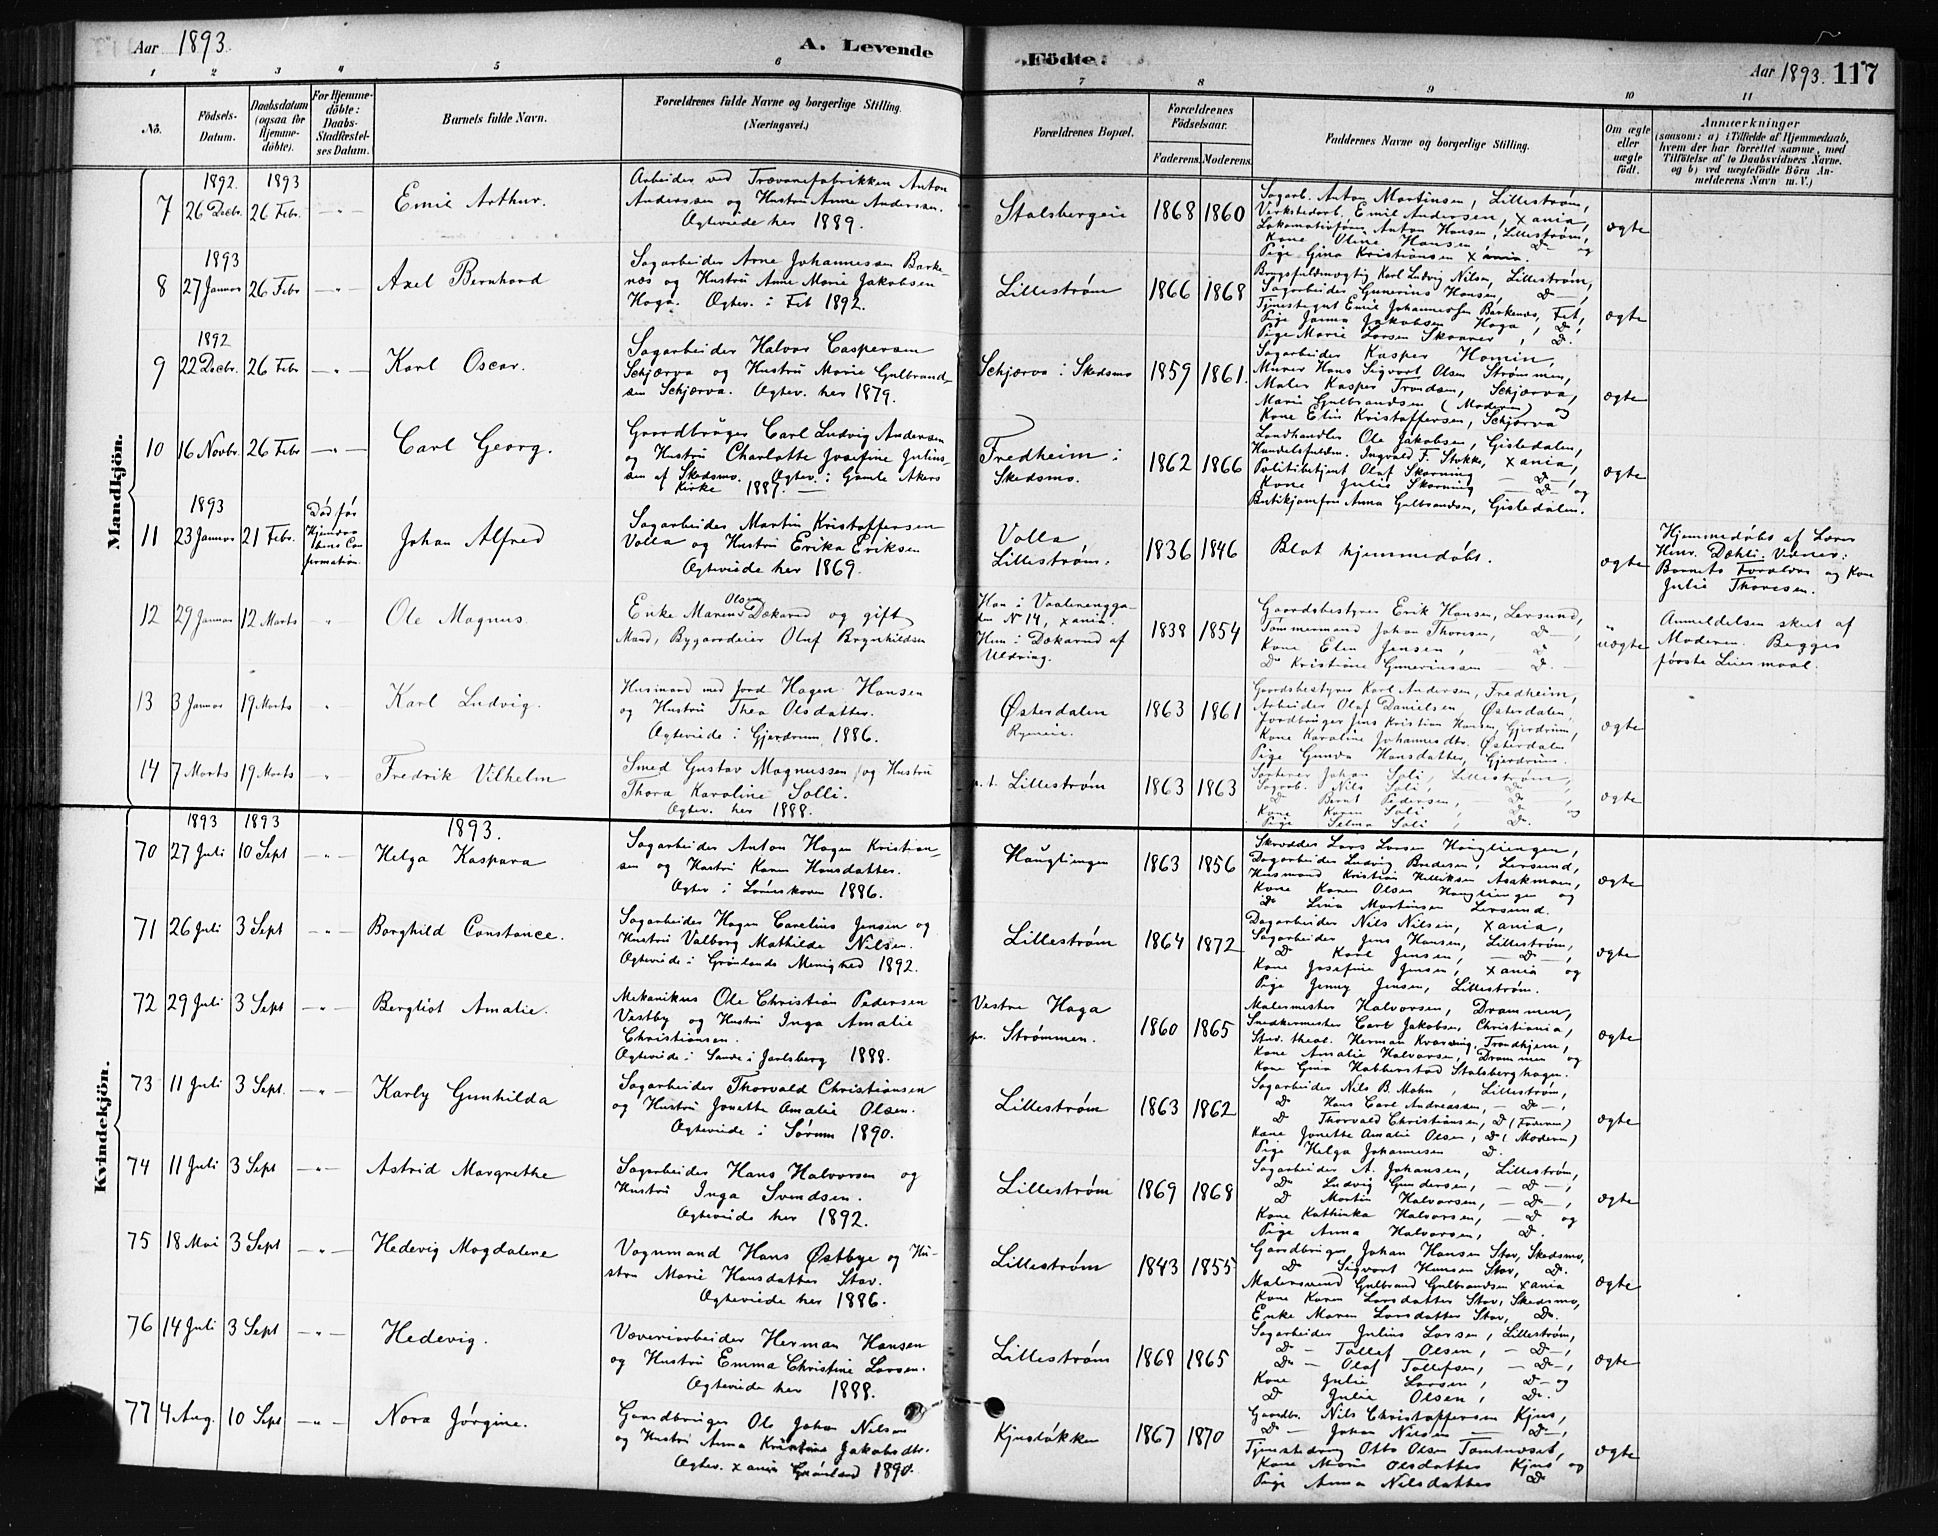 Aar 1893.
A. Levende Födte:
Aar 1893. 117
1 2 3 4 5 6 7 8 9 10 11
No.
Födsels-Datum.
Daabsdatum (ogsaa for Hjemme-döbte).
For Hjemme-döbte: Daabs-Stadfæstel-ses Datum.
Barnets fulde Navn.
Forældrenes fulde Navne og borgerlige Stilling.
(Næringsvei.)
Forældrenes Bopæl.
Forældrenes Födselsaar.
Faderens. Moderens.
Faddernes Navne og borgerlige Stilling.
Om ægte eller uægte födt.
Anmærkninger
(saasom: a) i Tilfælde af Hjemmedaab, hvem der har forrettet samme, med Tilföielse af to Daabsvidners Navne. og b) ved uægtefödte Börn An-melderens Navn m. V.)
Mandkjön.
7
1892. 26 Decbr.
1893 26 Febr.
Emil Arthur.
Arbeider ved Trævarefabrikken Anton
Anderssen og Hustru Anne Andersen.
Ægteviede her 1889.
Stalsbergeie
1868 1860
Sagarb. Anton Martinsen, Lillestrøm,
Verkstedarb. Emil Andersen, Xania,
Lokomotivfører Anton Hansen, Lillestrøm,
Kone Oline Hansen, Do og
Pige Gina Kristiansen Xania.
ægte
8
1893 27 Januar
26 Febr
Axel Bernhard
Sagarbeider Arne Johannessen Barke-
næs og Hustru Anne Marie Jakobsen
Haga. Ægtev. i Fet 1892.
Lillestrøm
1866 1868
Brugsfuldmægtig Karl Ludvig Nilsen, Lillestrøm,
Sagarbeider Gunerius Hansen, Do
Tjenestegut Emil Johannessen Barkenæs, Fet,
Pige Janna Jakobsen Haga, Do
Pige Marie Larsen Skaarer, Do.
ægte
9
1892 22 Decbr.
26 Febr
Karl Oscar.
Sagarbeider Halvor Caspersen
Schjærva og Hustru Marie Gulbrand-
sen Schjærva. Ægtev. her 1879.
Schjærva i Skedsmo
1859 1861.
Sagarbeider Kasper Homin,
Murer Hans Sigvart Olsen Strømmen,
Maler Kasper Trondsen, Schjærva,
Marie Gulbrandsen (Moderen) og
Kone Elin Kristoffersen, Schjærva
ægte
10
16 Novbr.
26 Febr
Carl Georg.
Gaardbruger Carl Ludvig Andersen
og Hustru Charlotte Josefine Julius-
sen af Skedsmo. Ægtev. i Gamle Akers
Kirke 1887.
Fredheim i
Skedsmo.
1862 1866
Landhandler Ole Jakobsen, Gistedalen,
Handelsfuldm. Ingvald F. Stokke, Xania,
Politibetjent Olaf Skarning Do,
Kone Julie Skarning Do og
Butikjomfru Anna Gulbrandsen, Gistedalen.
ægte
11
1893 23 Januar
21 Febr.
Død før Hjemdaa-bens Con-firmation.
Johan Alfred
Sagarbeider Martin Kristoffersen
Volla og Hustru Erika Eriksen
Ægteviede her 1869.
Volla
Lillestrøm.
1836 1846
Blot hjemmedøbt.
ægte
Hjemmedøbt af Lærer
Hinr. Dæhli. Vidner:
Barnets Forældre og Kone
Julie Thoresen.
12
29 Januar
12 Marts
Ole Magnus
Enke Maren Olsen Dækarud og gift
Mand, Bygaardeier Oluf Brynhildsen
Han i Vaalerengga-
den N 14, Xania.
Hun i Dækarud af
Uldring.
1838 1854
Gaardsbestyrer Erik Hansen, Lersund,
Tømmermand Johan Thoresen, Do
Kone Elen Jensen, Do
Do Kristiane Gunerinssen Do.
uægte
Anmeldelsen skeet af
Moderen. Begges
første Leiermaal.
13
3 Januar
19 Marts
Karl Ludvig.
Husmand med Jord Hagen Hansen
og Hustru Thea Olsdatter.
Ægteviede i Gjerdrum, 1886.
Østerdalen
1863 1861
Gaardsbestyrer Karl Andersen, Fredheim,
Arbeider Olaf Danielsen, Østerdalen,
Jordbruger Jens Kristian Hansen, Gjerdrum,
Kone Karoline Johannesdtr. Østerdalen
Pige Gunda Hansdatter, Gjerdrum.
ægte
14
7 Marts
19 Marts
Fredrik Vilhelm
Smed Gustav Magnussen og Hustru
Thora Karoline Solli.
Ægtev. her 1888.
p. t. Lillestrøm
1863 1863
Sorterer Johan Soli, Lillestrøm,
Sagarb. Nils Soli, Do,
Do Bernt Pedersen, Do,
Kone Karen Soli, Do og
Pige Selma Soli, Do.
ægte
Kvindekjön.
1893 1893 1893.
70
27 Juli
10 Sept
Helga Kaspara
Sagarbeider Anton Hagen Kristian-
sen og Hustru Karen Hansdatter.
Ægtev i Lørenskoven 1886.
Hauglingen
1863 1856
Skrædder Lars Larsen Hauglingen,
Dagarbeider Ludvig Bredesen, Lersund,
Husmand Kristian Helliksen Asakmoen,
Kone Karen Olsen Hauglingen og
Do Lina Martinsen Lersund.
ægte
71
26 Juli
3 Sept
Borghild Constance.
Sagarbeider Hagen Carelius Jensen og
Hustru Valborg Mathilde Nilsen.
Ægteviede i Grønlands Menighed 1892.
Lillestrøm
1864 1872
Dagarbeider Nils Nilsen, Xania,
Sagarbeider Jens Hansen, Lillestrøm,
Do Karl Jensen, Do,
Kone Josefine Jensen, Xania og
Pige Jenny Jensen, Lillestrøm.
ægte
72
29 Juli
3 Sept
Bergliot Amalie.
Mekanikus Ole Christian Pedersen
Vestby og Hustru Inga Amalie
Christiansen.
Ægteviede i Sande i Jarlsberg 1888.
Vestre Haga
pr. Strømmen.
1860 1865
Malermester Halvorsen, Drammen,
Snedkermester Carl Jakobsen, Christiania,
Stud. theol. Herman Kvarving, Trondhjem,
Kone Amalie Halvorsen, Drammen og
Kone Gina Habberstad Stalsberghagen.
ægte
73
11 Juli
3 Sept.
Karly Gunhilda
Sagarbeider Thorvald Christiansen
og Hustru Jonette Amalie Olsen.
Ægteviede i Sørum 1890.
Lillestrøm
1863 1862
Sagarbeider Nils B. Mohn, Lillestrøm,
Do Hans Carl Andreassen, Do,
Do Thorvald Christiansen, Do (Faderen)
Kone Jonette Amalie Olsen, Do (Moderen)
Pige Helga Johannesen Do.
ægte
74
11 Juli
3 Sept
Astrid Margrethe
Sagarbeider Hans Halvorsen og
Hustru Inga Svendsen.
Ægteviede her 1892.
Lillestrøm
1869 1868
Sagarbeider A. Johansen, Lillestrøm,
Do Ludvig Gundersen, Do,
Do Martin Halvorsen, Do,
Kone Kathinka Halvorsen, Do og
Pige Anna Halvorsen, Do.
ægte
75
18 Mai
3 Sept
Hedevig Magdalene
Vognmand Hans Østbye og Hu-
stru Marie Hansdatter Stav.
Ægteviede her 1886.
Lillestrøm
1843 1855
Gaardbruger Johan Hansen Stav, Skedsmo,
Do Sigvart Hansen Stav, Do.
Malersvend Gulbrand Gulbrandsen Xania
Kone Karen Larsdatter Stav, Skedsmo,
Enke Maren Larsdatter Stav, Do.
ægte
76
14 Juli
3 Sept
Hedevig.
Væveriarbeider Herman Hansen
og Hustru Emma Christine Larsen.
Ægteviede her 1888.
Lillestrøm
1868 1865
Sagarbeider Julius Larsen, Lillestrøm,
Do Tollef Olsen, Do,
Do Olaf Tollefsen, Do,
Kone Julie Larsen, Do og
Do Julie Olsen, Do.
ægte
77
4 Aug.
10 Sept
Nora Jørgine.
Gaardbruger Ole Johan Nilsen
og Hustru Anna Kristine Jakobsdtr.
Ægtev. Xania Grønland 1890.
Kjusløkken
1867 1870
Gaardbr. Nils Christoffersen Kjus,
Do Johan Nilsen Do,
Tjenestedreng Otto Olsen Tomtvaset,
Kone Marie Olsdatter Kjus og
Pige Anna Nilsdatter Do
ægte